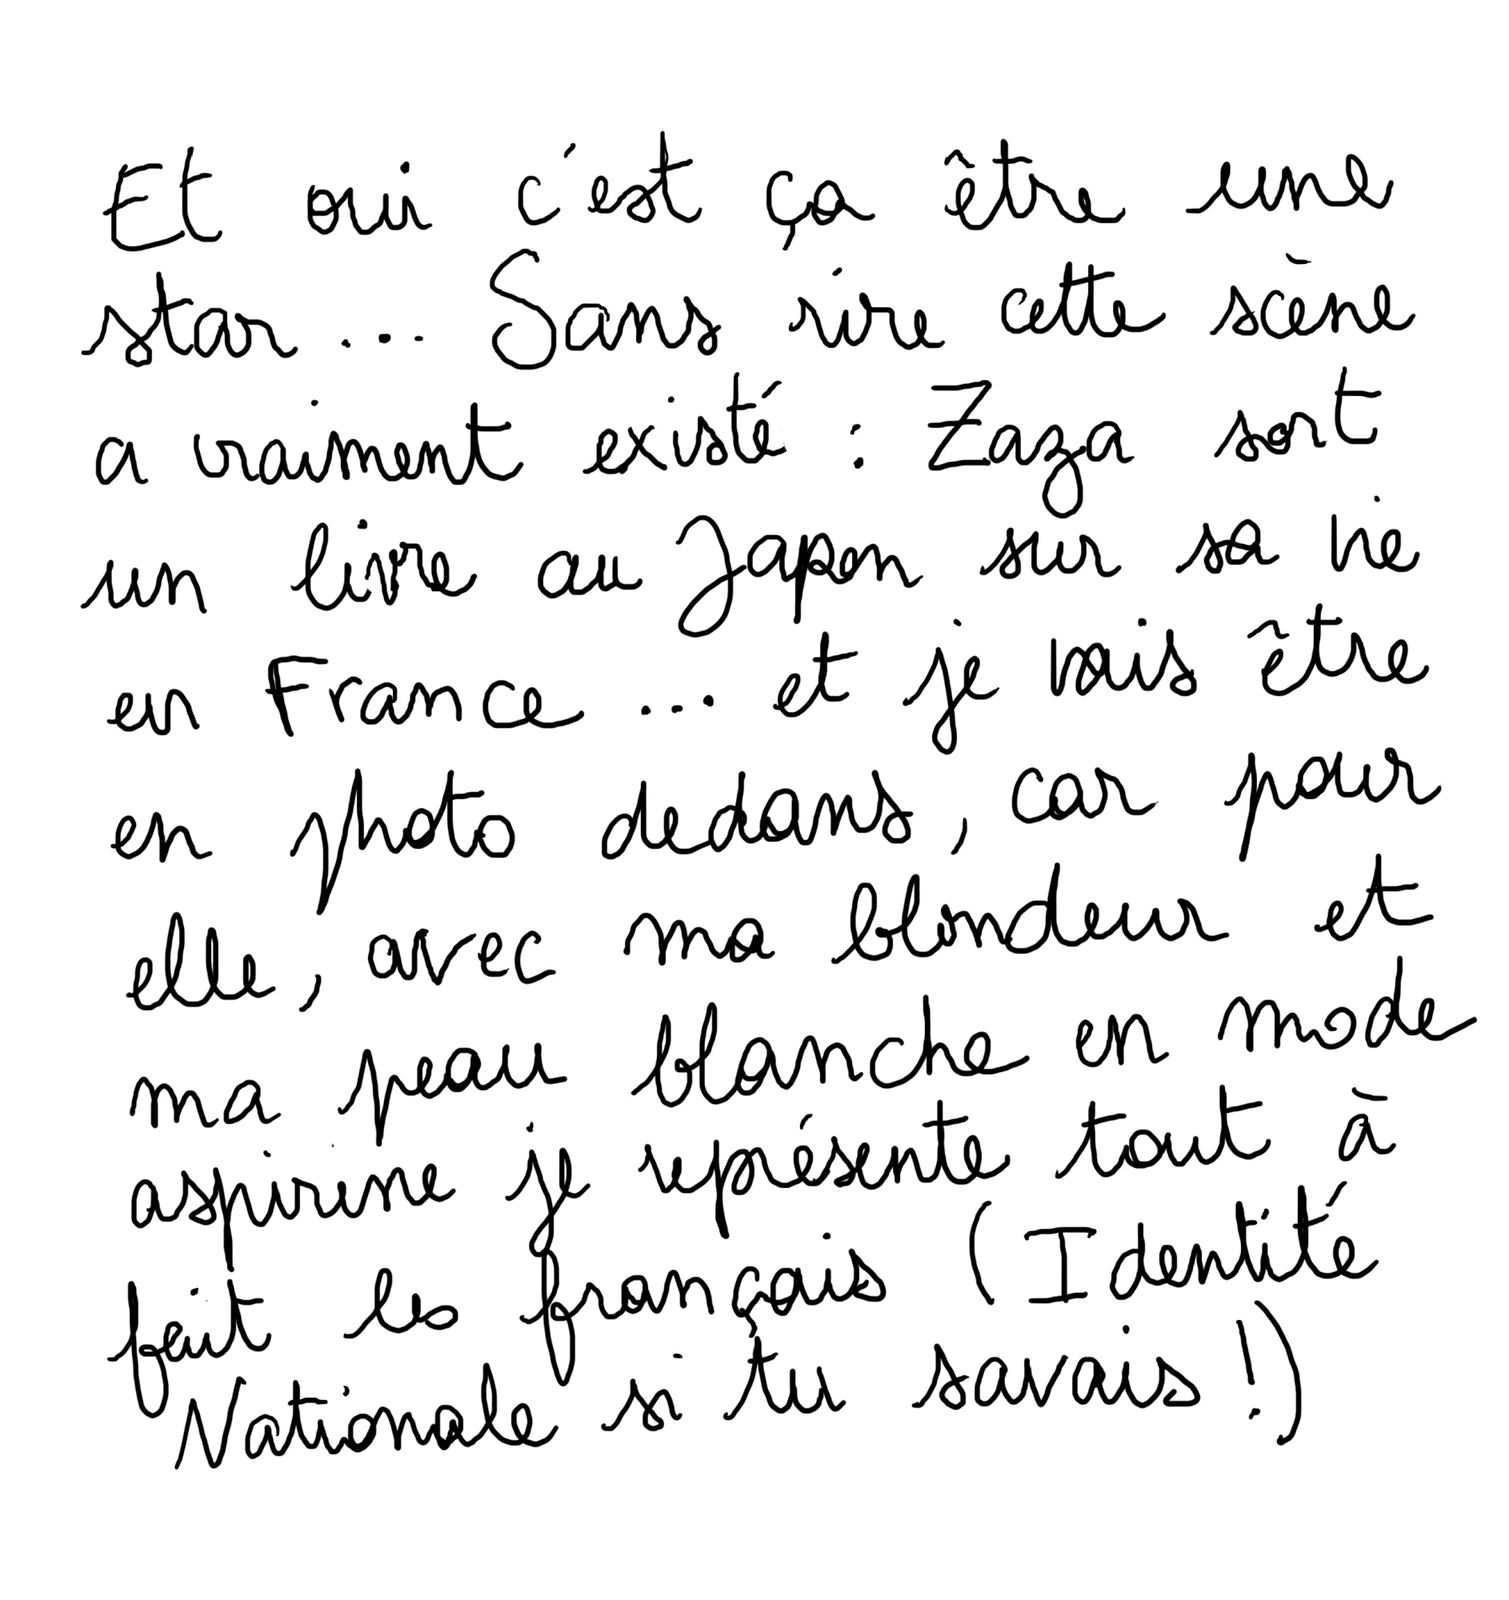 Et oui c'est ça être une
star... Sans rire cette scène
a vraiment existé : Zaza sort
un livre au Japon sur sa vie
en France... et je vais être
en photo dedans, car pour
elle, avec ma blondeur et
ma peau blanche en mode
aspirine je représente tout à
fait les français (Identité
Nationale si tu savais !)